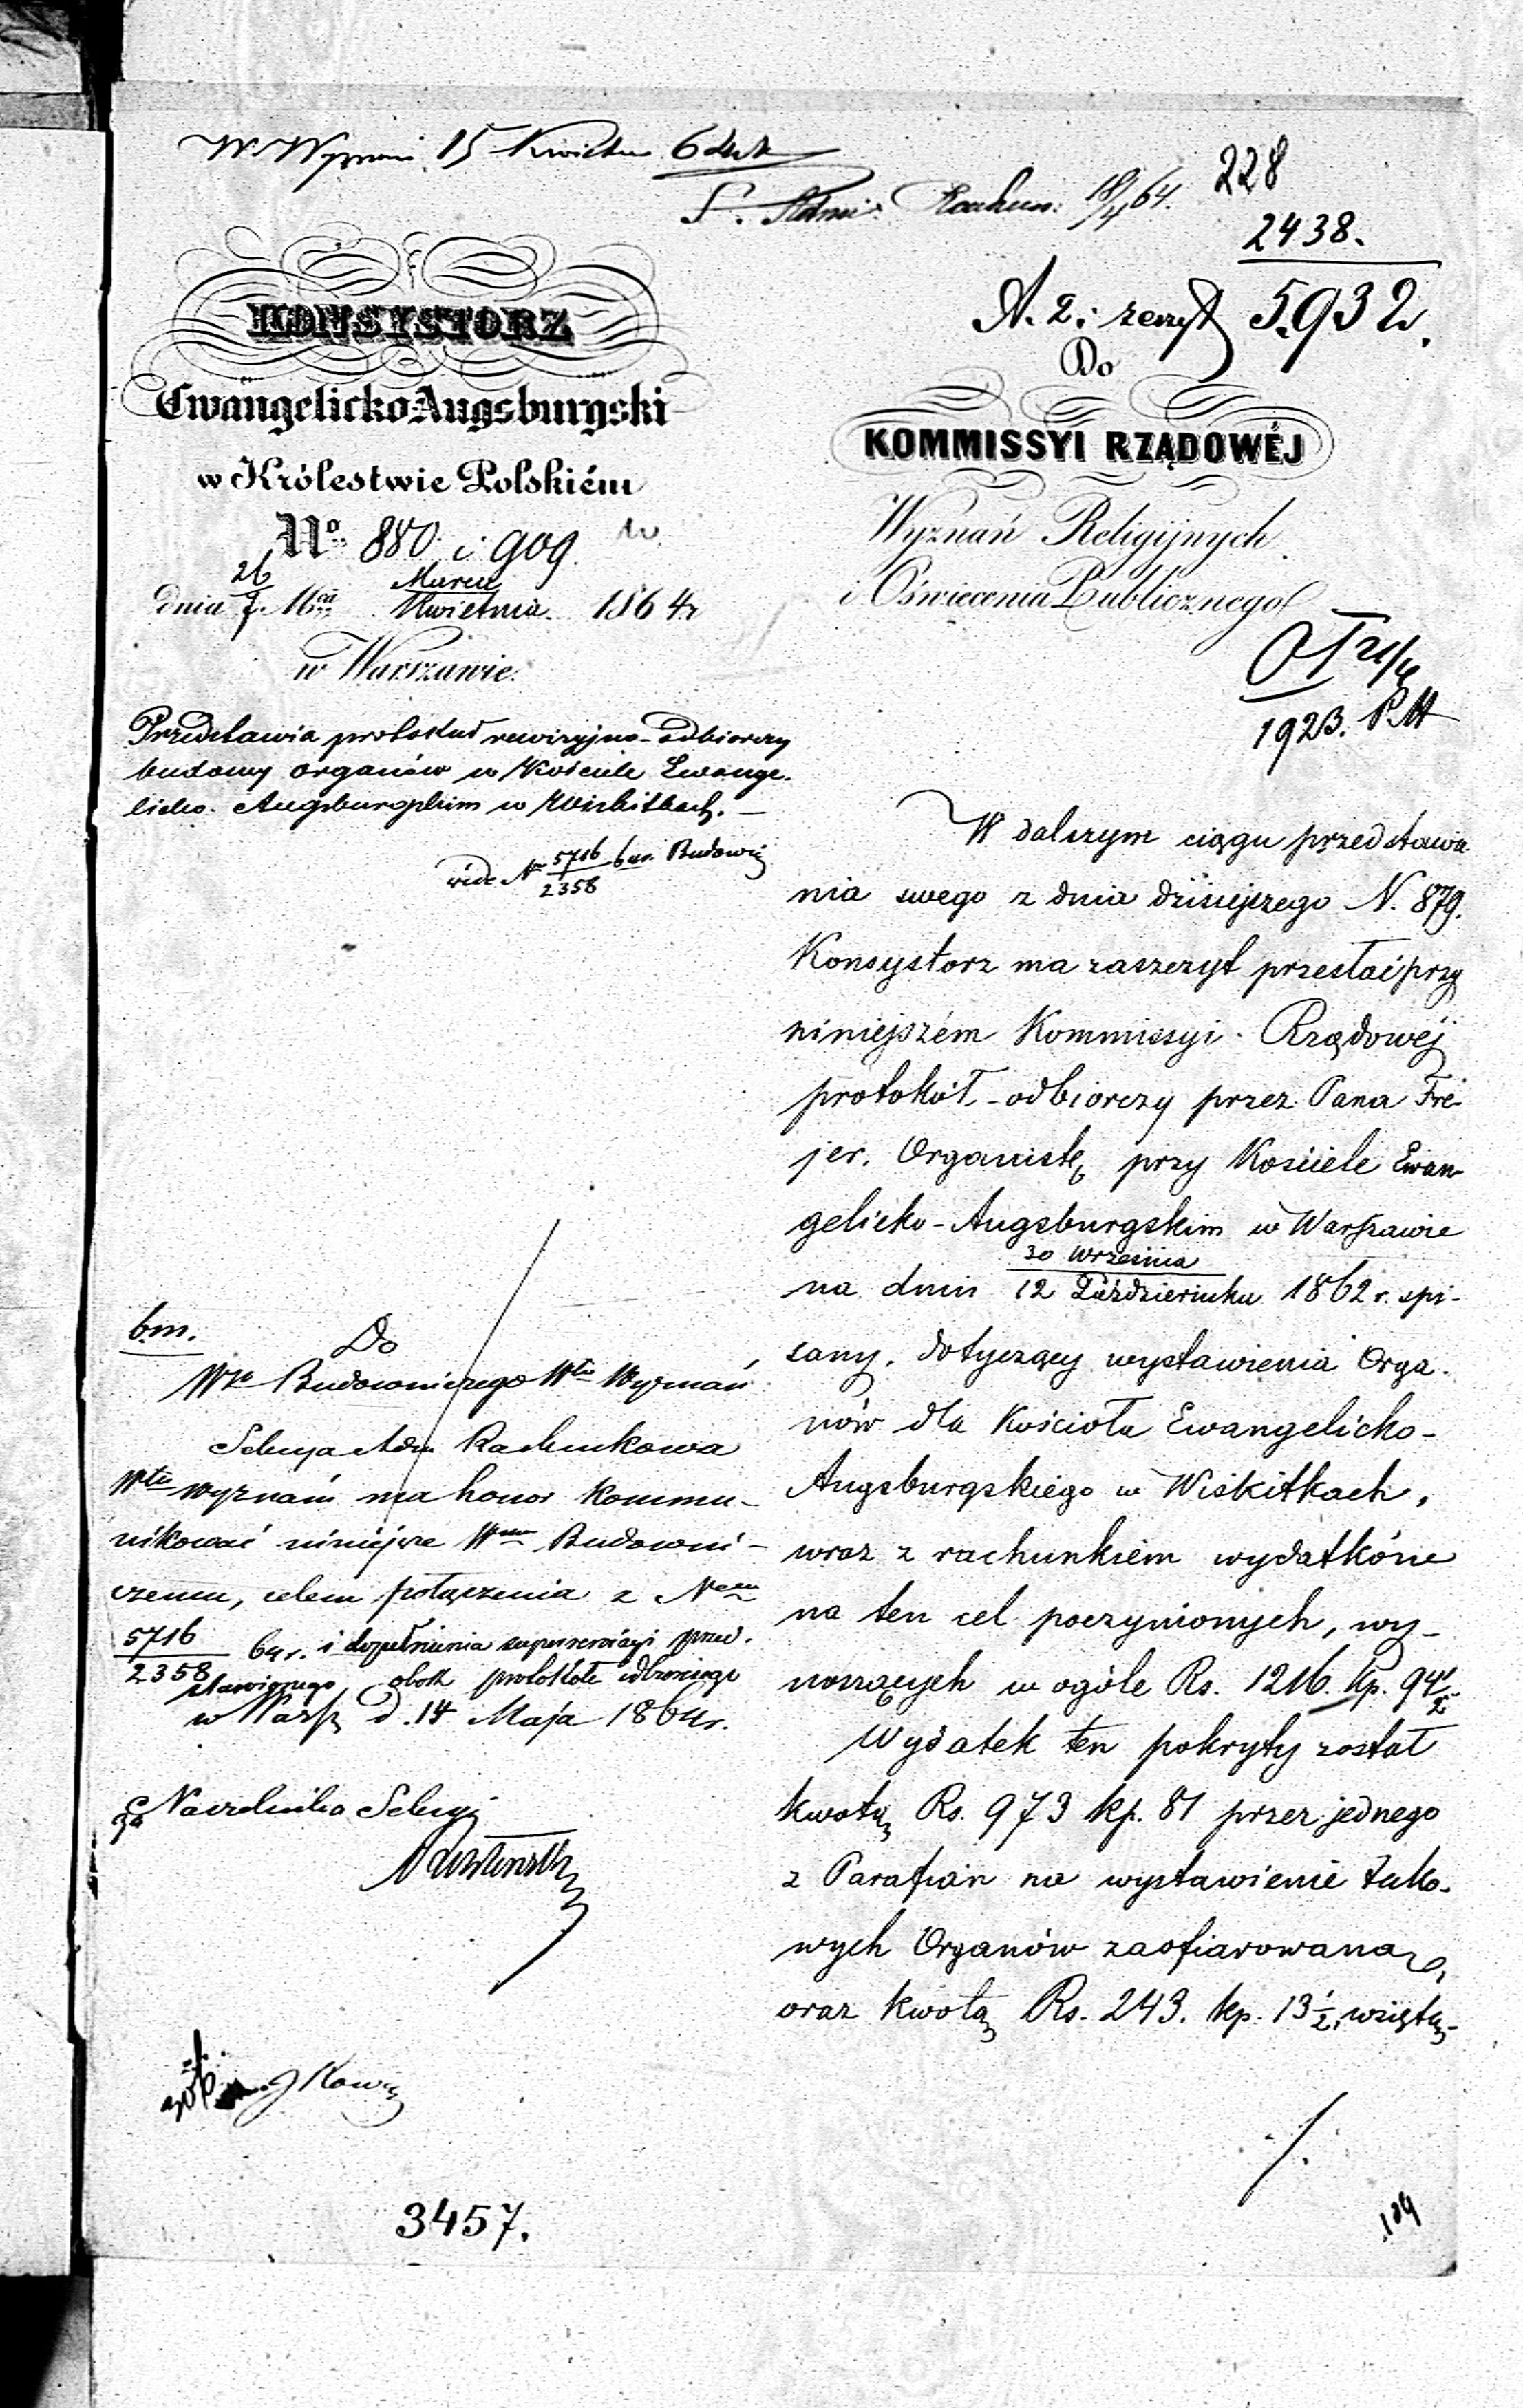 15 64
Rachun: 18/4 64.
228
2438.
A. 2 i zeszyt 5932.
KONSYSTORZ
Ewangelicko-Augsburgski
w Królestwie Polskiém
No 880 i 909.
26 Marca
dnia 7. Mca Kwietnia. 1864 r
w Warszawie.
Przedstawia protokuł rewizyjno-odbiorczy
budowy organów w Kościele Ewange-
licko-Augsburgskim w Wiskitkach.—
vide N 5716/2358 64r. Budown
Do
KOMMISSYI RZĄDOWÉJ
Wyznań Religijnych
i Oświecenia Publicznego
21/4
1923.
W dalszym ciągu przedstawie
nia swego z dnia dzisiejszego N. 879.
Konsystorz ma zaszczyt przesłać przy
niniejszém Kommissyi Rządowéj
protokół-odbiorczy przez Pana Fre-
jer, Organistę przy Kościele Ewan
gelicko-Augsburgskim w Warszawie
30 Września
na dniu 12 Października 1862 r. spi-
sany, dotyczący wystawienia Orga-
nów dla Kościoła Ewangelicko-
Augsburgskiego w Wiskitkach,
wraz z rachunkiem wydatków
na ten cel poczynionych, wy-
noszących w ogóle Rs. 1216 kp. 94 1/2.
Wydatek ten pokryty został
kwotą Rs. 973 kp. 81 przez jednego
z Parafian na wystawienie tako-
wych Organów zaofiarowaną,
oraz kwotą Rs. 243. kp. 13 1/2, wziętą-
./.
b.m.
Do
Wgo Budowniczego Włu Wyznań
Sekcya Adm Rachunkowa
Włu wyznań ma honor kommu-
nikować niniejsze Wmu Budowni-
czemu, celem połączenia z Nem
5716/2358 64 r. i dopełnienia superrewizyi przed-
stawionego obok protokółu odbiorczego
w Warsz d. 14 Maja 1864 r.
za Naczelnika Sekcyi
3457.
189